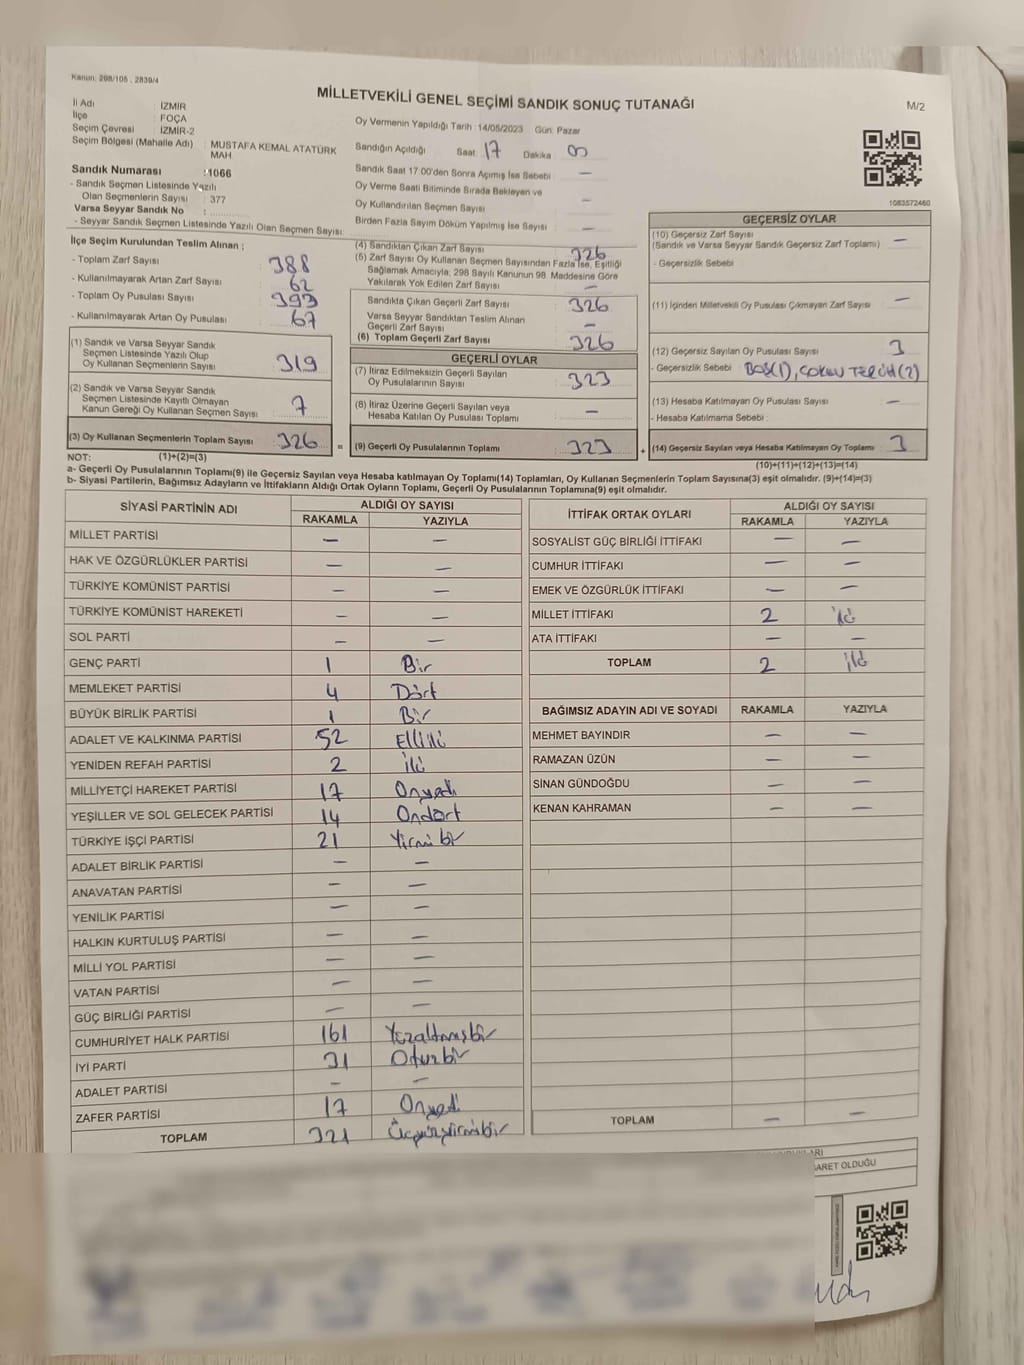 Kanun: 298/105 , 2839/4
MİLLETVEKİLİ GENEL SEÇİMİ SANDIK SONUÇ TUTANAĞI
M/2
İl Adı : İZMİR
İlçe : FOÇA
Seçim Çevresi : İZMİR-2
Seçim Bölgesi (Mahalle Adı) : MUSTAFA KEMAL ATATÜRK
MAH
Sandık Numarası : 1066
- Sandık Seçmen Listesinde Yazılı
Olan Seçmenlerin Sayısı : 377
Varsa Seyyar Sandık No :
- Seyyar Sandık Seçmen Listesinde Yazılı Olan Seçmen Sayısı:
Oy Vermenin Yapıldığı Tarih : 14/05/2023 Gün: Pazar
Sandığın Açıldığı Saat: 17 Dakika 00
Sandık Saat 17:00'den Sonra Açılmış İse Sebebi : —
Oy Verme Saati Bitiminde Sırada Bekleyen ve
Oy Kullandırılan Seçmen Sayısı : —
Birden Fazla Sayım Döküm Yapılmış İse Sayısı : —
1083572460
İlçe Seçim Kurulundan Teslim Alınan ;
- Toplam Zarf Sayısı : 388
- Kullanılmayarak Artan Zarf Sayısı : 62
- Toplam Oy Pusulası Sayısı : 393
- Kullanılmayarak Artan Oy Pusulası : 67
(1) Sandık ve Varsa Seyyar Sandık
Seçmen Listesinde Yazılı Olup
Oy Kullanan Seçmenlerin Sayısı : 319
(2) Sandık ve Varsa Seyyar Sandık
Seçmen Listesinde Kayıtlı Olmayan
Kanun Gereği Oy Kullanan Seçmen Sayısı : 7
(3) Oy Kullanan Seçmenlerin Toplam Sayısı : 326
(4) Sandıktan Çıkan Zarf Sayısı : 326
(5) Zarf Sayısı Oy Kullanan Seçmen Sayısından Fazla İse, Eşitliği
Sağlamak Amacıyla, 298 Sayılı Kanunun 98. Maddesine Göre
Yakılarak Yok Edilen Zarf Sayısı : —
Sandıkta Çıkan Geçerli Zarf Sayısı : 326
Varsa Seyyar Sandıktan Teslim Alınan
Geçerli Zarf Sayısı : —
(6) Toplam Geçerli Zarf Sayısı : 326
GEÇERLİ OYLAR
(7) İtiraz Edilmeksizin Geçerli Sayılan
Oy Pusulalarının Sayısı : 323
(8) İtiraz Üzerine Geçerli Sayılan veya
Hesaba Katılan Oy Pusulası Toplamı : —
= (9) Geçerli Oy Pusulalarının Toplamı : 323 +
GEÇERSİZ OYLAR
(10) Geçersiz Zarf Sayısı
(Sandık ve Varsa Seyyar Sandık Geçersiz Zarf Toplamı) : —
- Geçersizlik Sebebi :
(11) İçinden Milletvekili Oy Pusulası Çıkmayan Zarf Sayısı : —
(12) Geçersiz Sayılan Oy Pusulası Sayısı : 3
- Geçersizlik Sebebi : BOŞ(1), ÇOKLU TERCİH(2)
(13) Hesaba Katılmayan Oy Pusulası Sayısı : —
- Hesaba Katılmama Sebebi :
(14) Geçersiz Sayılan veya Hesaba Katılmayan Oy Toplamı : 3
NOT: (1)+(2)=(3)
(10)+(11)+(12)+(13)=(14)
a- Geçerli Oy Pusulalarının Toplamı(9) ile Geçersiz Sayılan veya Hesaba katılmayan Oy Toplamı(14) Toplamları, Oy Kullanan Seçmenlerin Toplam Sayısına(3) eşit olmalıdır. (9)+(14)=(3)
b- Siyasi Partilerin, Bağımsız Adayların ve İttifakların Aldığı Ortak Oyların Toplamı, Geçerli Oy Pusulalarının Toplamına(9) eşit olmalıdır.
SİYASİ PARTİNİN ADI ALDIĞI OY SAYISI
RAKAMLA YAZIYLA
MİLLET PARTİSİ — —
HAK VE ÖZGÜRLÜKLER PARTİSİ — —
TÜRKİYE KOMÜNİST PARTİSİ — —
TÜRKİYE KOMÜNİST HAREKETİ — —
SOL PARTİ — —
GENÇ PARTİ 1 Bir
MEMLEKET PARTİSİ 4 Dört
BÜYÜK BİRLİK PARTİSİ 1 Bir
ADALET VE KALKINMA PARTİSİ 52 Elliiki
YENİDEN REFAH PARTİSİ 2 iki
MİLLİYETÇİ HAREKET PARTİSİ 17 Onyedi
YEŞİLLER VE SOL GELECEK PARTİSİ 14 Ondört
TÜRKİYE İŞÇİ PARTİSİ 21 Yirmi bir
ADALET BİRLİK PARTİSİ — —
ANAVATAN PARTİSİ — —
YENİLİK PARTİSİ — —
HALKIN KURTULUŞ PARTİSİ — —
MİLLİ YOL PARTİSİ — —
VATAN PARTİSİ — —
GÜÇ BİRLİĞİ PARTİSİ — —
CUMHURİYET HALK PARTİSİ 161 Yüzaltmışbir
İYİ PARTİ 31 Otuzbir
ADALET PARTİSİ — —
ZAFER PARTİSİ 17 Onyedi
TOPLAM 321 Üçyüzyirmibir
İTTİFAK ORTAK OYLARI ALDIĞI OY SAYISI
RAKAMLA YAZIYLA
SOSYALİST GÜÇ BİRLİĞİ İTTİFAKI — —
CUMHUR İTTİFAKI — —
EMEK VE ÖZGÜRLÜK İTTİFAKI — —
MİLLET İTTİFAKI 2 iki
ATA İTTİFAKI — —
TOPLAM 2 iki
BAĞIMSIZ ADAYIN ADI VE SOYADI RAKAMLA YAZIYLA
MEHMET BAYINDIR — —
RAMAZAN ÜZÜN — —
SİNAN GÜNDOĞDU — —
KENAN KAHRAMAN — —
TOPLAM — —
OLDUĞU